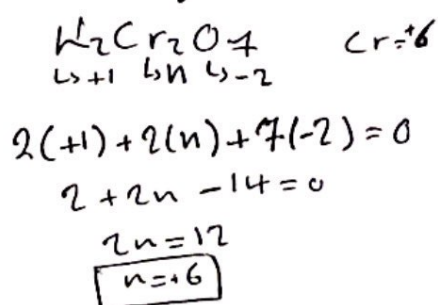 H₂Cr₂O7 Cr=+6
↳+1 ↳n ↳-2
2(+1)+2(n)+7(-2)=0
2+2n-14=0
2n=12
n=+6